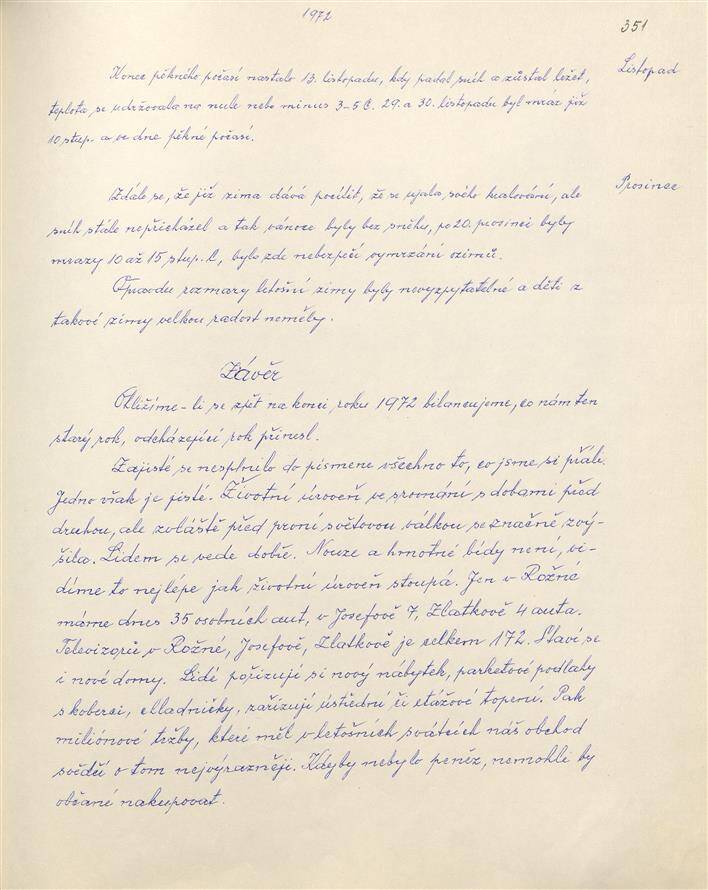 1972
351
Konec pěkného počasí nastalo 13. listopadu, kdy padal sníh a zůstal ležet,
Listopad
teplota se udržovala na nule nebo minus 3-5 C. 29. a 30. listopadu byl mráz již
10 stup. a ve dne pěkné počasí.
Zdálo se, že již zima dává pocítit, že se ujala svého kralování, ale
Prosinec
sníh stále nepřicházel a tak vánoce byly bez sněhu, po 20. prosinci byly
mrazy 10 až 15 stup. C, bylo zde nebezpečí vymrzání ozimů.
Opravdu rozmary letošní zimy byly nevyzpytatelné a děti z
takové zimy velkou radost neměly.
Závěr
Ohlížíme-li se zpět na konci roku 1972 bilancujeme, co nám ten
starý rok, odcházející rok přinesl.
Zajisté se nesplnilo do písmene všechno to, co jsme si přáli.
Jedno však je jisté. Životní úroveň ve srovnání s dobami před
druhou, ale zvláště před první světovou válkou se značně zvý-
šila. Lidem se vede dobře. Nouze a hmotné bídy není, vi-
díme to nejlépe jak životní úroveň stoupá. Jen v Rožné
máme dnes 35 osobních aut, v Josefově 7, Zlatkově 4 auta.
Televizorů v Rožné, Josefově, Zlatkově je celkem 172. Staví se
i nové domy. Lidé pořizují si nový nábytek, parketové podlahy
s koberci, chladničky, zařizují ústřední či etážové topení. Pak
miliónové tržby, které měl v letošních svátcích náš obchod
svědčí o tom nejvýrazněji. Kdyby nebylo peněz, nemohli by
občané nakupovat.